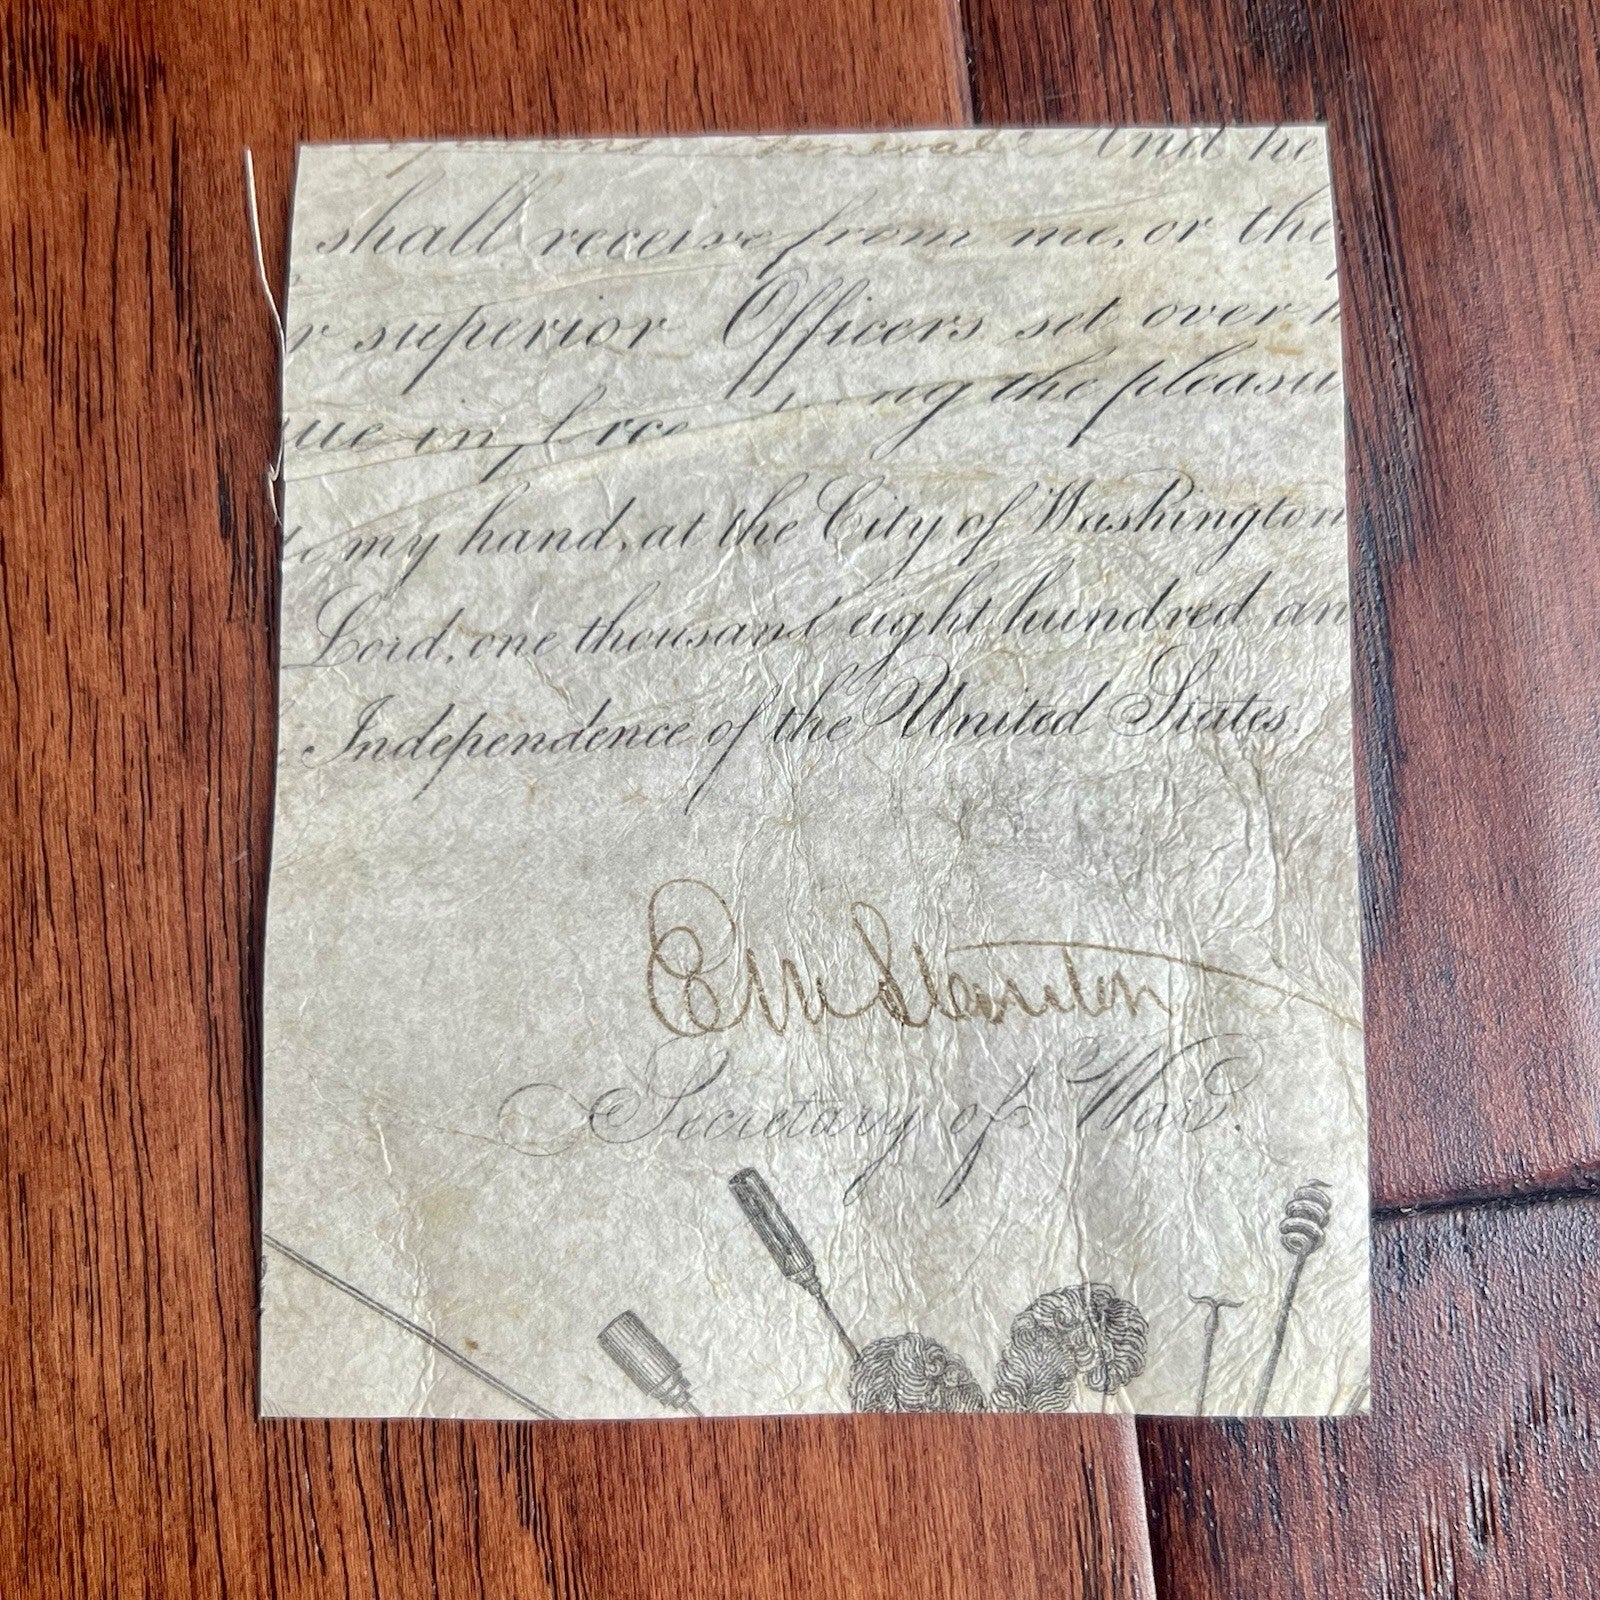 General And he
shall receive from me, or the
r superior Officers set over h
ue in force ng the pleasu
to my hand, at the City of Washington
Lord, one thousand eight hundred an
Independence of the United States.
Edwin M Stanton
Secretary of War.